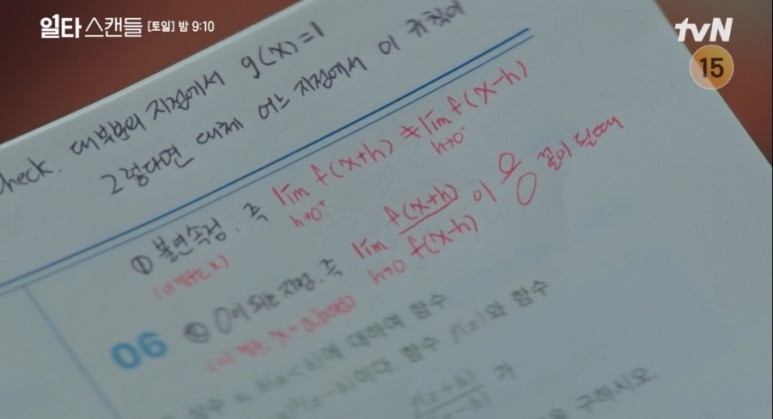 일타 스캔들 [토일] 밤 9:10
tvN
15
check. 대부분의 지점에서 g(x)=1
그렇다면 대체 어느 지점에서 이 규칙이
① 불연속점. 즉 lim h→0⁺ f(x+h) ≠ lim h→0⁺ f(x-h)
② 0이 되는 지점. 즉 lim h→0 f(x+h)/f(x-h) 이 0/0 꼴이 될 때
06
에 대하여 함수
이다. 함수 f(x)와 함수
f(x+h) 가
을 구하시오